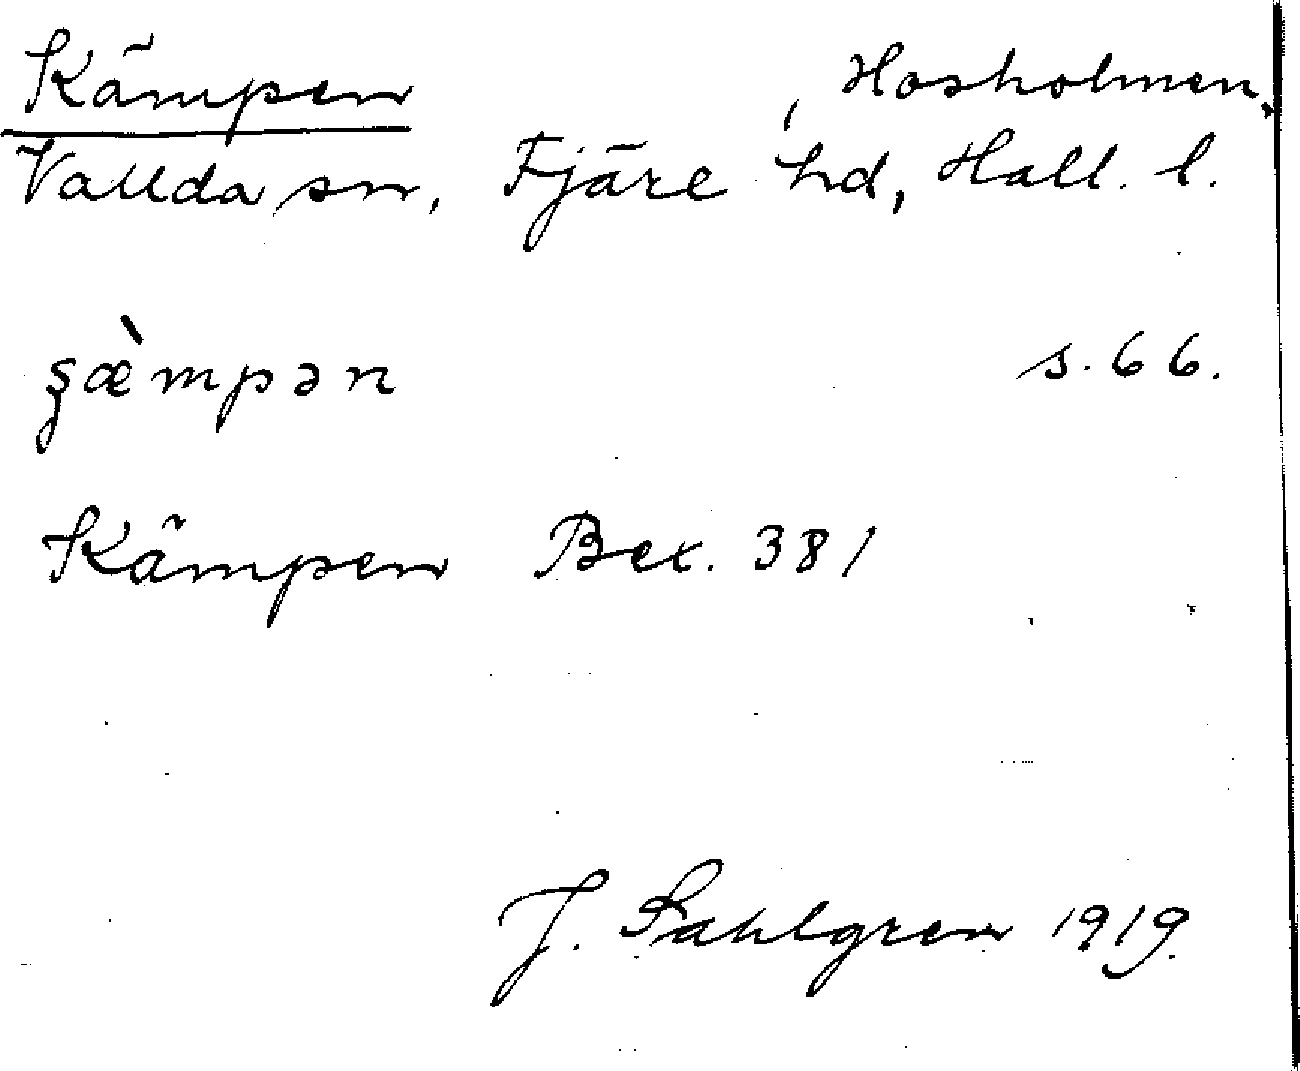 Kämpen , Hosholmen,
Vallda sn, Fjäre hd, Hall. l.
ȿæ̀mpən s. 66.
Kämpen Bex. 381
J. Sahlgren 1919.